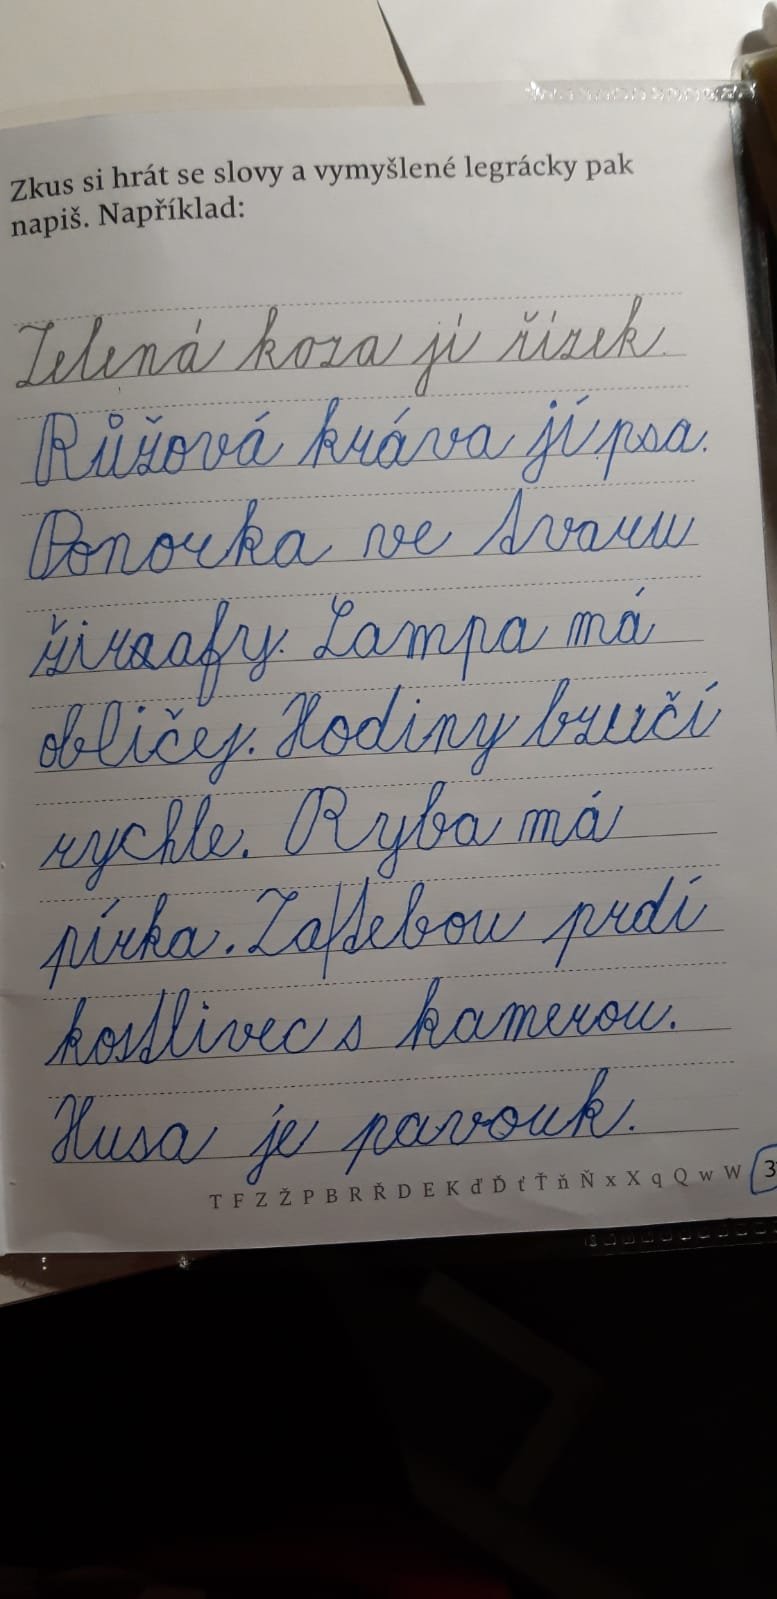 Zkus si hrát se slovy a vymyšlené legrácky pak
napiš. Například:
Zelená koza jí řízek.
Růžová kráva jí psa.
Ponorka ve tvaru
žiraafy. Lampa má
obličej. Hodiny bzučí
rychle. Ryba má
pírka. Za/tebou prdí
kostlivec s kamerou.
Husa je pavouk.
T F Z Ž P B R Ř D E K ď Ď ť Ť ň Ň x X q Q w W 3